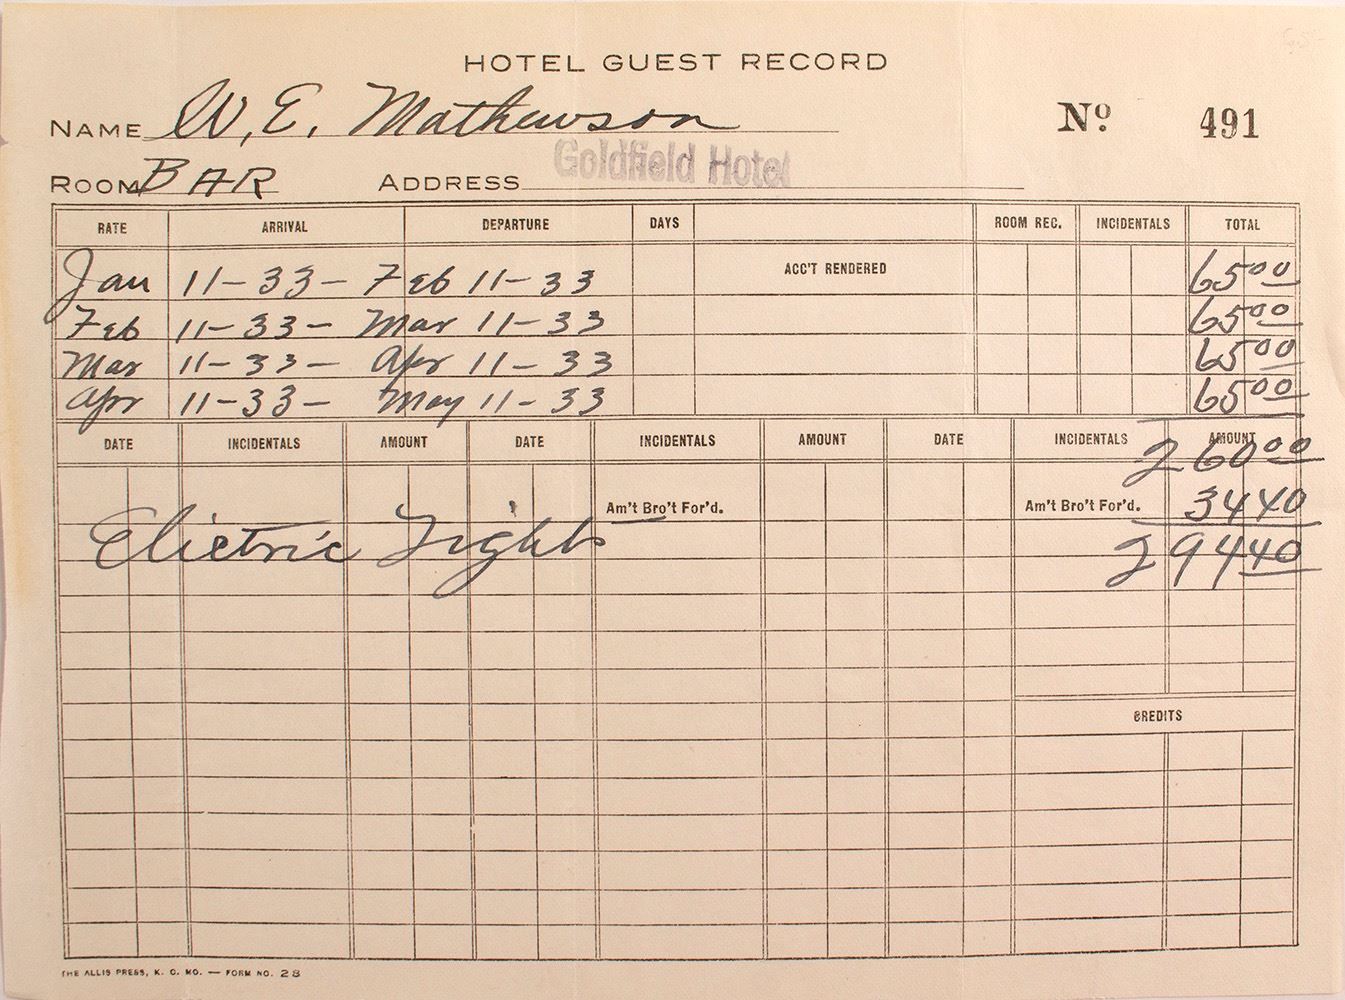 HOTEL GUEST RECORD
NAME W. E. Mathewson Nº 491
ROOM BAR ADDRESS Goldfield Hotel
RATE ARRIVAL DEPARTURE DAYS ROOM REC. INCIDENTALS TOTAL
ACC'T RENDERED
Jan 11-33- Feb 11-33 6500
Feb 11-33- Mar 11-33 6500
Mar 11-33- Apr 11-33 6500
Apr 11-33- May 11-33 6500
DATE INCIDENTALS AMOUNT DATE INCIDENTALS AMOUNT DATE INCIDENTALS AMOUNT
26000
Am't Bro't For'd. Am't Bro't For'd. 3440
Elictric Lights 29440
CREDITS
THE ALLIS PRESS, K. C. MO. — FORM NO. 28